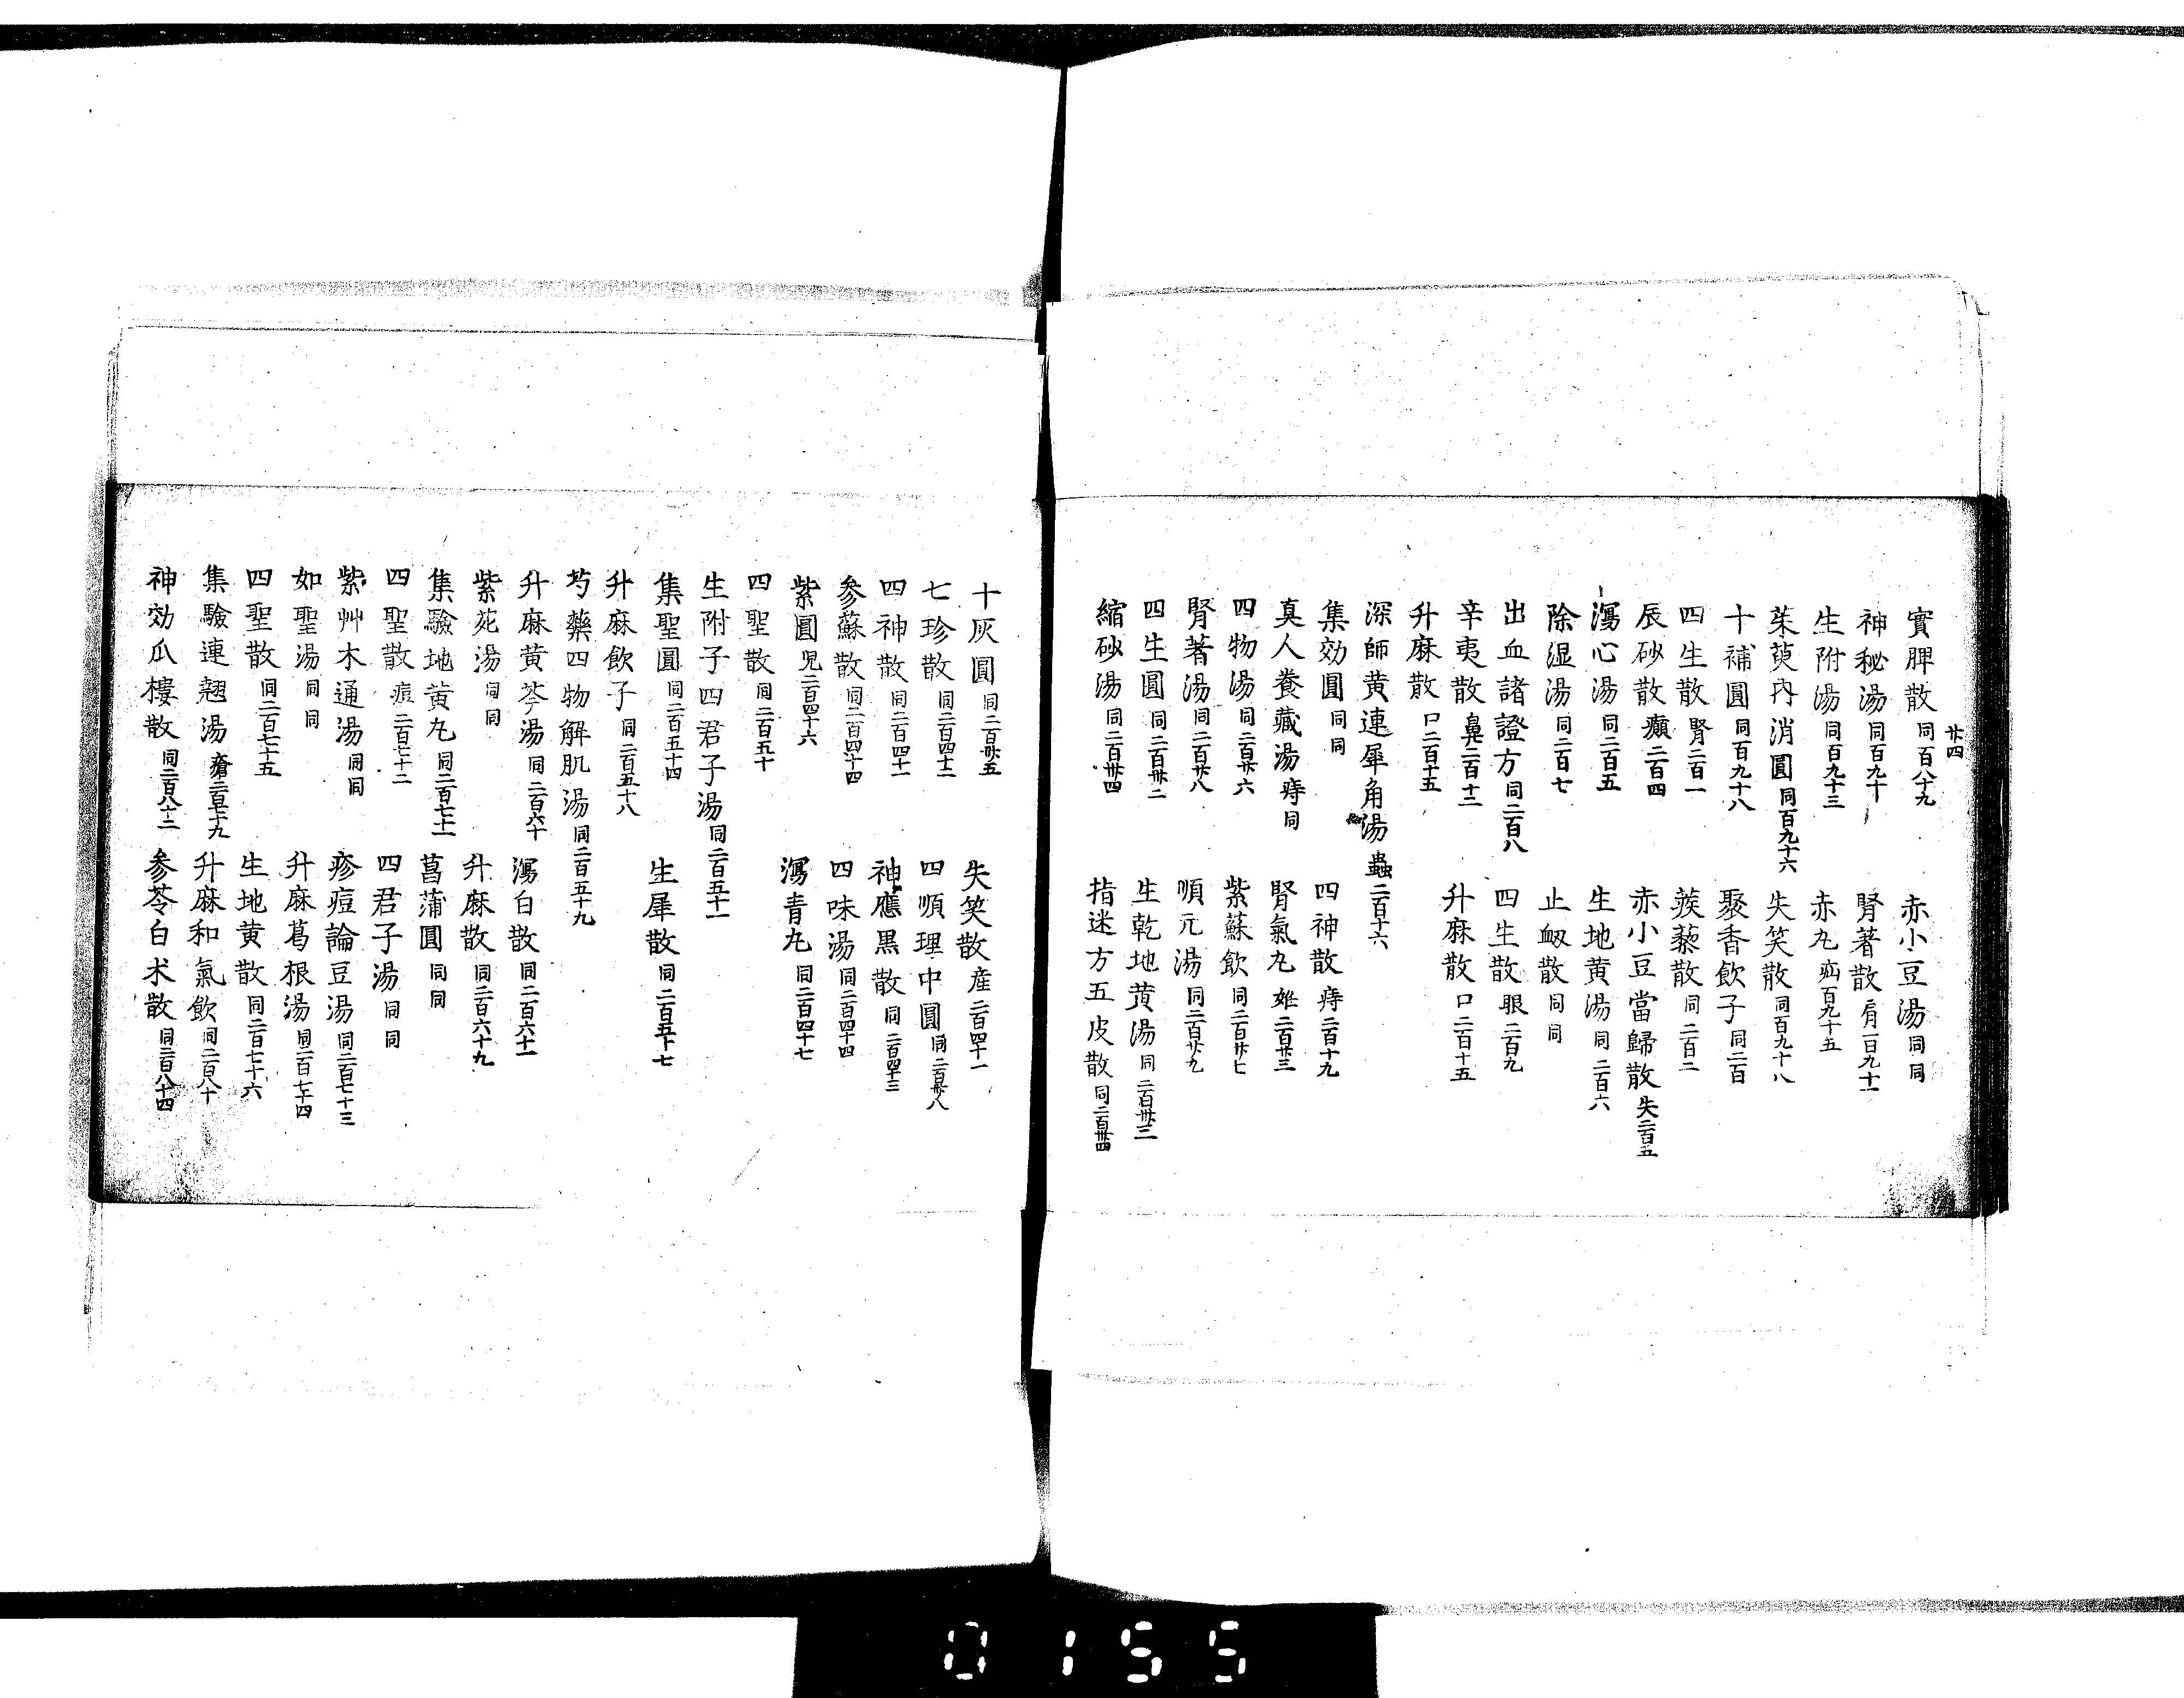 廿四
實脾散 同百八十九 赤小豆湯 同同
神秘湯 同百九十 腎著散 肩百九十一
生附湯 同百九十三 赤丸 疝百九十五
茱萸内消圓 同百九十六 失笑散 同百九十八
十補圓 同百九十八 聚香飲子 同二百
四生散 腎二百一 蒺藜散 同二百二
辰砂散 癲二百四 赤小豆當歸散 失二百五
瀉心湯 同二百五 生地黄湯 同二百六
除湿湯 同二百七 止衂散 同同
出血諸證方 同二百八 四生散 眼二百九
辛夷散 鼻二百十二 升麻散 口二百十五
升麻散 口二百十五
深師黄連犀角湯 蟲二百十六
集効圓 同同 四神散 痔二百十九
真人養藏湯 痔同 腎氣丸 二百廿三
四物湯 同二百廿六 紫蘇飲 同二百廿七
腎著湯 同二百廿八 順元湯 同二百廿九
四生圓 同二百卅二 生乾地黄湯 同二百卅三
縮砂湯 同二百卅四 指迷方五皮散 同二百卅四
十灰圓 同二百卅五 失笑散 産二百四十一
七珍散 同二百四十二 四順理中圓 同二百卅八
四神散 同二百四十一 神應黒散 同二百四十三
參蘇散 同二百四十四 四味湯 同二百四十四
紫圓 児二百四十六 瀉青丸 同二百四十七
四聖散 同二百五十
生附子四君子湯 同二百五十一
集聖圓 同二百五十四 生犀散 同二百五十七
升麻飲子 同二百五十八
芍藥四物解肌湯 同二百五十九
升麻黄芩湯 同二百六十 瀉白散 同二百六十一
紫苑湯 同同 升麻散 同二百六十九
集驗地黄丸 同二百七十一 菖蒲圓 同同
四聖散 痘二百七十二 四君子湯 同同
紫艸木通湯 同同 疹痘論豆湯 同二百七十三
如聖湯 同同 升麻葛根湯 同二百七十四
四聖散 同二百七十五 生地黄散 同二百七十六
集驗連翹湯 瘡二百七十九 升麻和氣飲 同二百八十
神効瓜樓散 同二百八十二 參苓白朮散 同二百八十四
0155